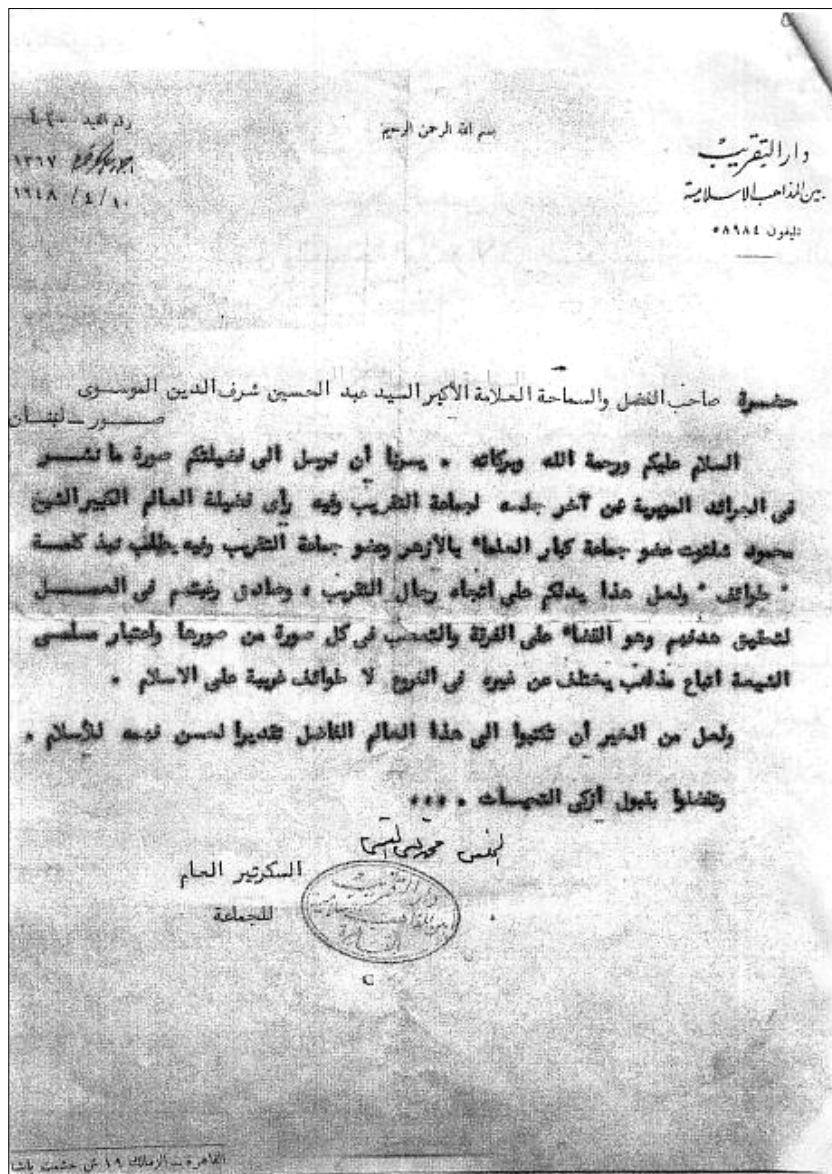 بسم الله الرحمن الرحيم
دار التقريب
بين المذاهب الاسلامية
تليفون ٥٨٩٨٤
رقم القيد
١٣٦٧
١٩٤٨ /٤/١٠
حضرة صاحب الفضل والسماحة العلامة الأكبر السيد عبد الحسين شرف الدين الموسوى
صــور ــ لبنــان
السلام عليكم ورحمة الله وبركاته ٠ يسرنا أن نرسل الى فضيلتكم صورة ما نشــر
فى الجرائد المصرية عن آخر جلسه لجماعة التقريب وفيه رأى فضيلة العالم الكبير الشيخ
محمود شلتوت عضو جماعة كبار العلما* بالأزهر وعضو جماعة التقريب وفيه يطلب نبذ كلمــة
" طوائف " ولعل هذا يدلكم على اتجاه رجال التقريب ، وصادق رغبتهم فى العمــل
لتحقيق هدفهم وهو القضا* على الفرقة والتعصب فى كل صورة من صورها واعتبار مسلمى
الشيعة اتباع مذهب يختلف عن غيره فى الفروع لا طوائف غريبة على الاسلام ٠
ولعل من الخير أن تكتبوا الى هذا العالم الفاضل تقديرا لحسن فهمه للأسلام ٠
وتفضلوا بقبول أزكى التحيــات ٠٠٠٠
السكرتير العام
للجماعة
دار التقريب
بين المذاهب الاسلامية
القاهرة
القاهرة ــ الزمالك ١٩ ش حشمت باشا